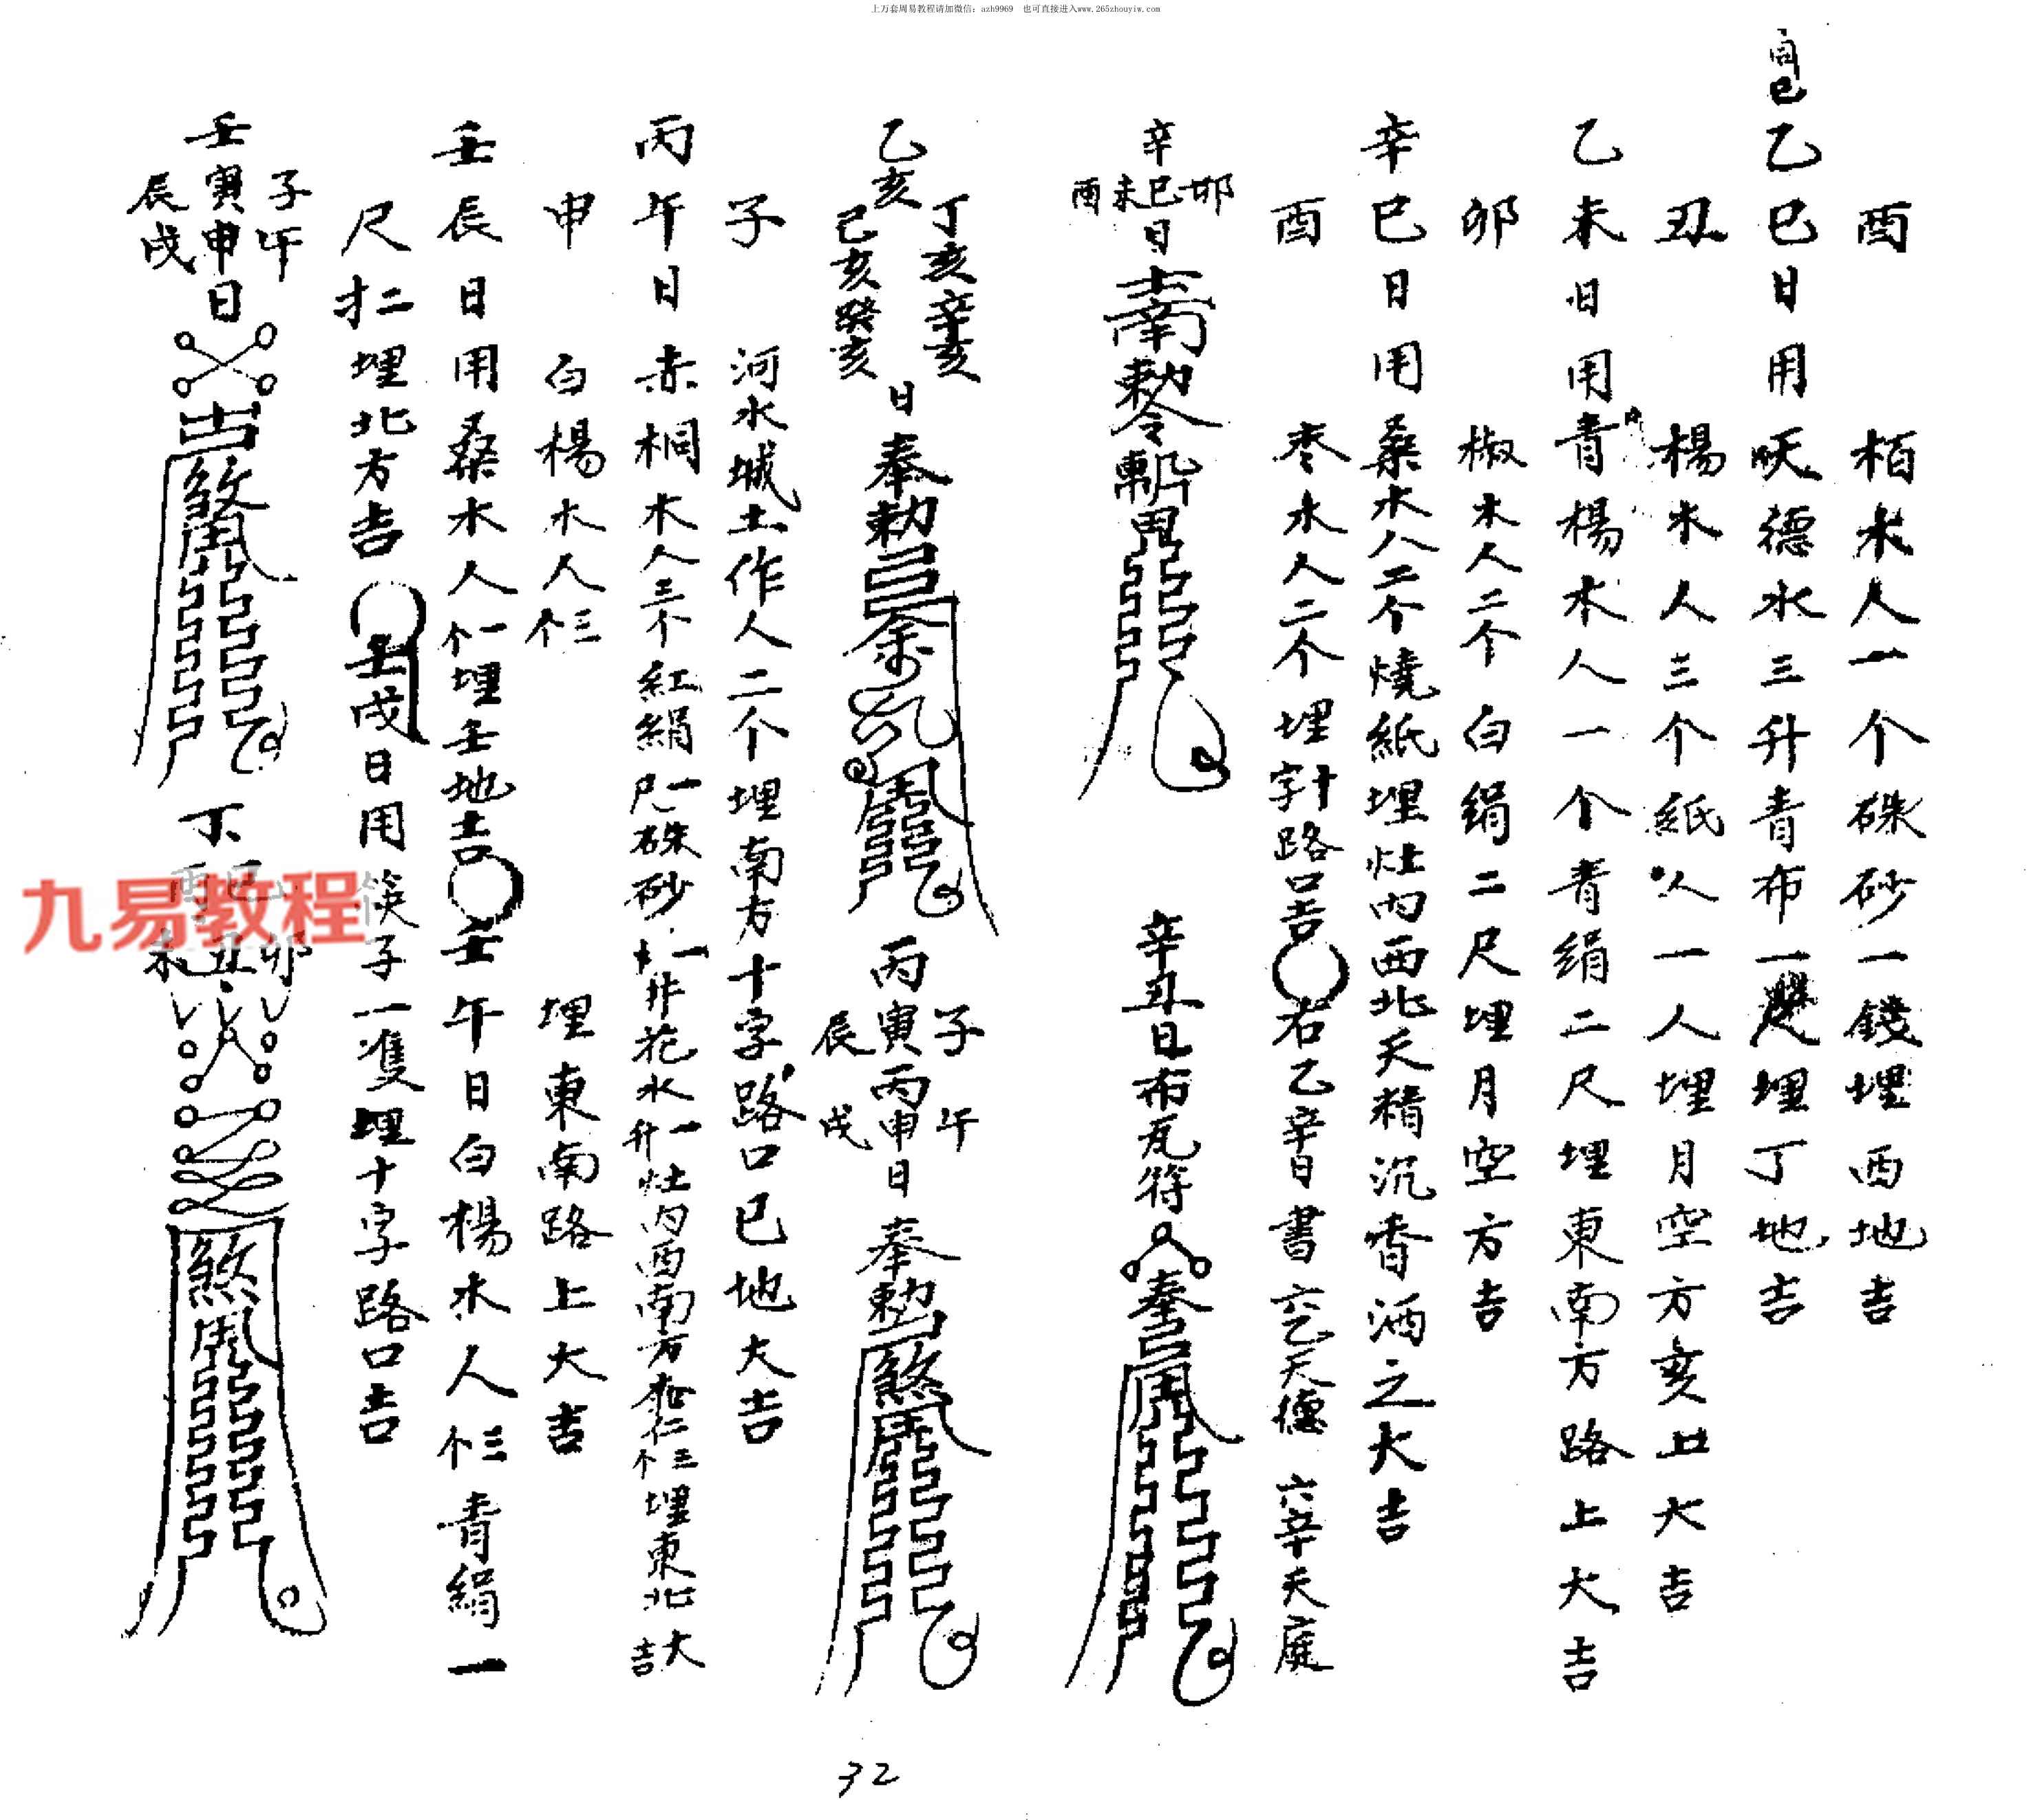 上万套周易教程请加微信：azh9969 也可直接进入www.265zhouyiw.com
酉 柏木人一个硃砂一錢埋西地吉
乙巳日用 德水三升青布一 埋丁地吉
丑 楊木人三个紙人一人埋月空方亥上大吉
乙未日用青楊木人一个青絹二尺埋東南方路上大吉
卯 椒木人二个白絹二尺埋月空方吉
辛巳日用桑木人二个燒紙埋灶内西北天精沉香酒之大吉
酉 枣木人二个埋十字路口吉〇右乙辛日書六乙天德 六辛天庭
辛卯巳未酉日 敕令斬鬼
辛丑日布瓦符 奉
乙亥丁亥己亥辛亥癸亥日奉勅
丙子寅午辰丙申戌日奉勅 煞
子 河水城土作人二个埋南方十字路口巳地大吉
丙午日赤桐木人三个紅絹一尺硃砂 井花水一升灶内西南方 三个埋東北大吉
申 白楊木人三个 埋東南路上大吉
壬辰日用桑木人一个埋壬地吉〇壬午日白楊木人三个青絹一
尺 二埋北方吉〇壬戌日用筷子一隻埋十字路口吉
壬子寅午辰申戌日 煞
丁 巳卯丑未 煞
九易教程
32